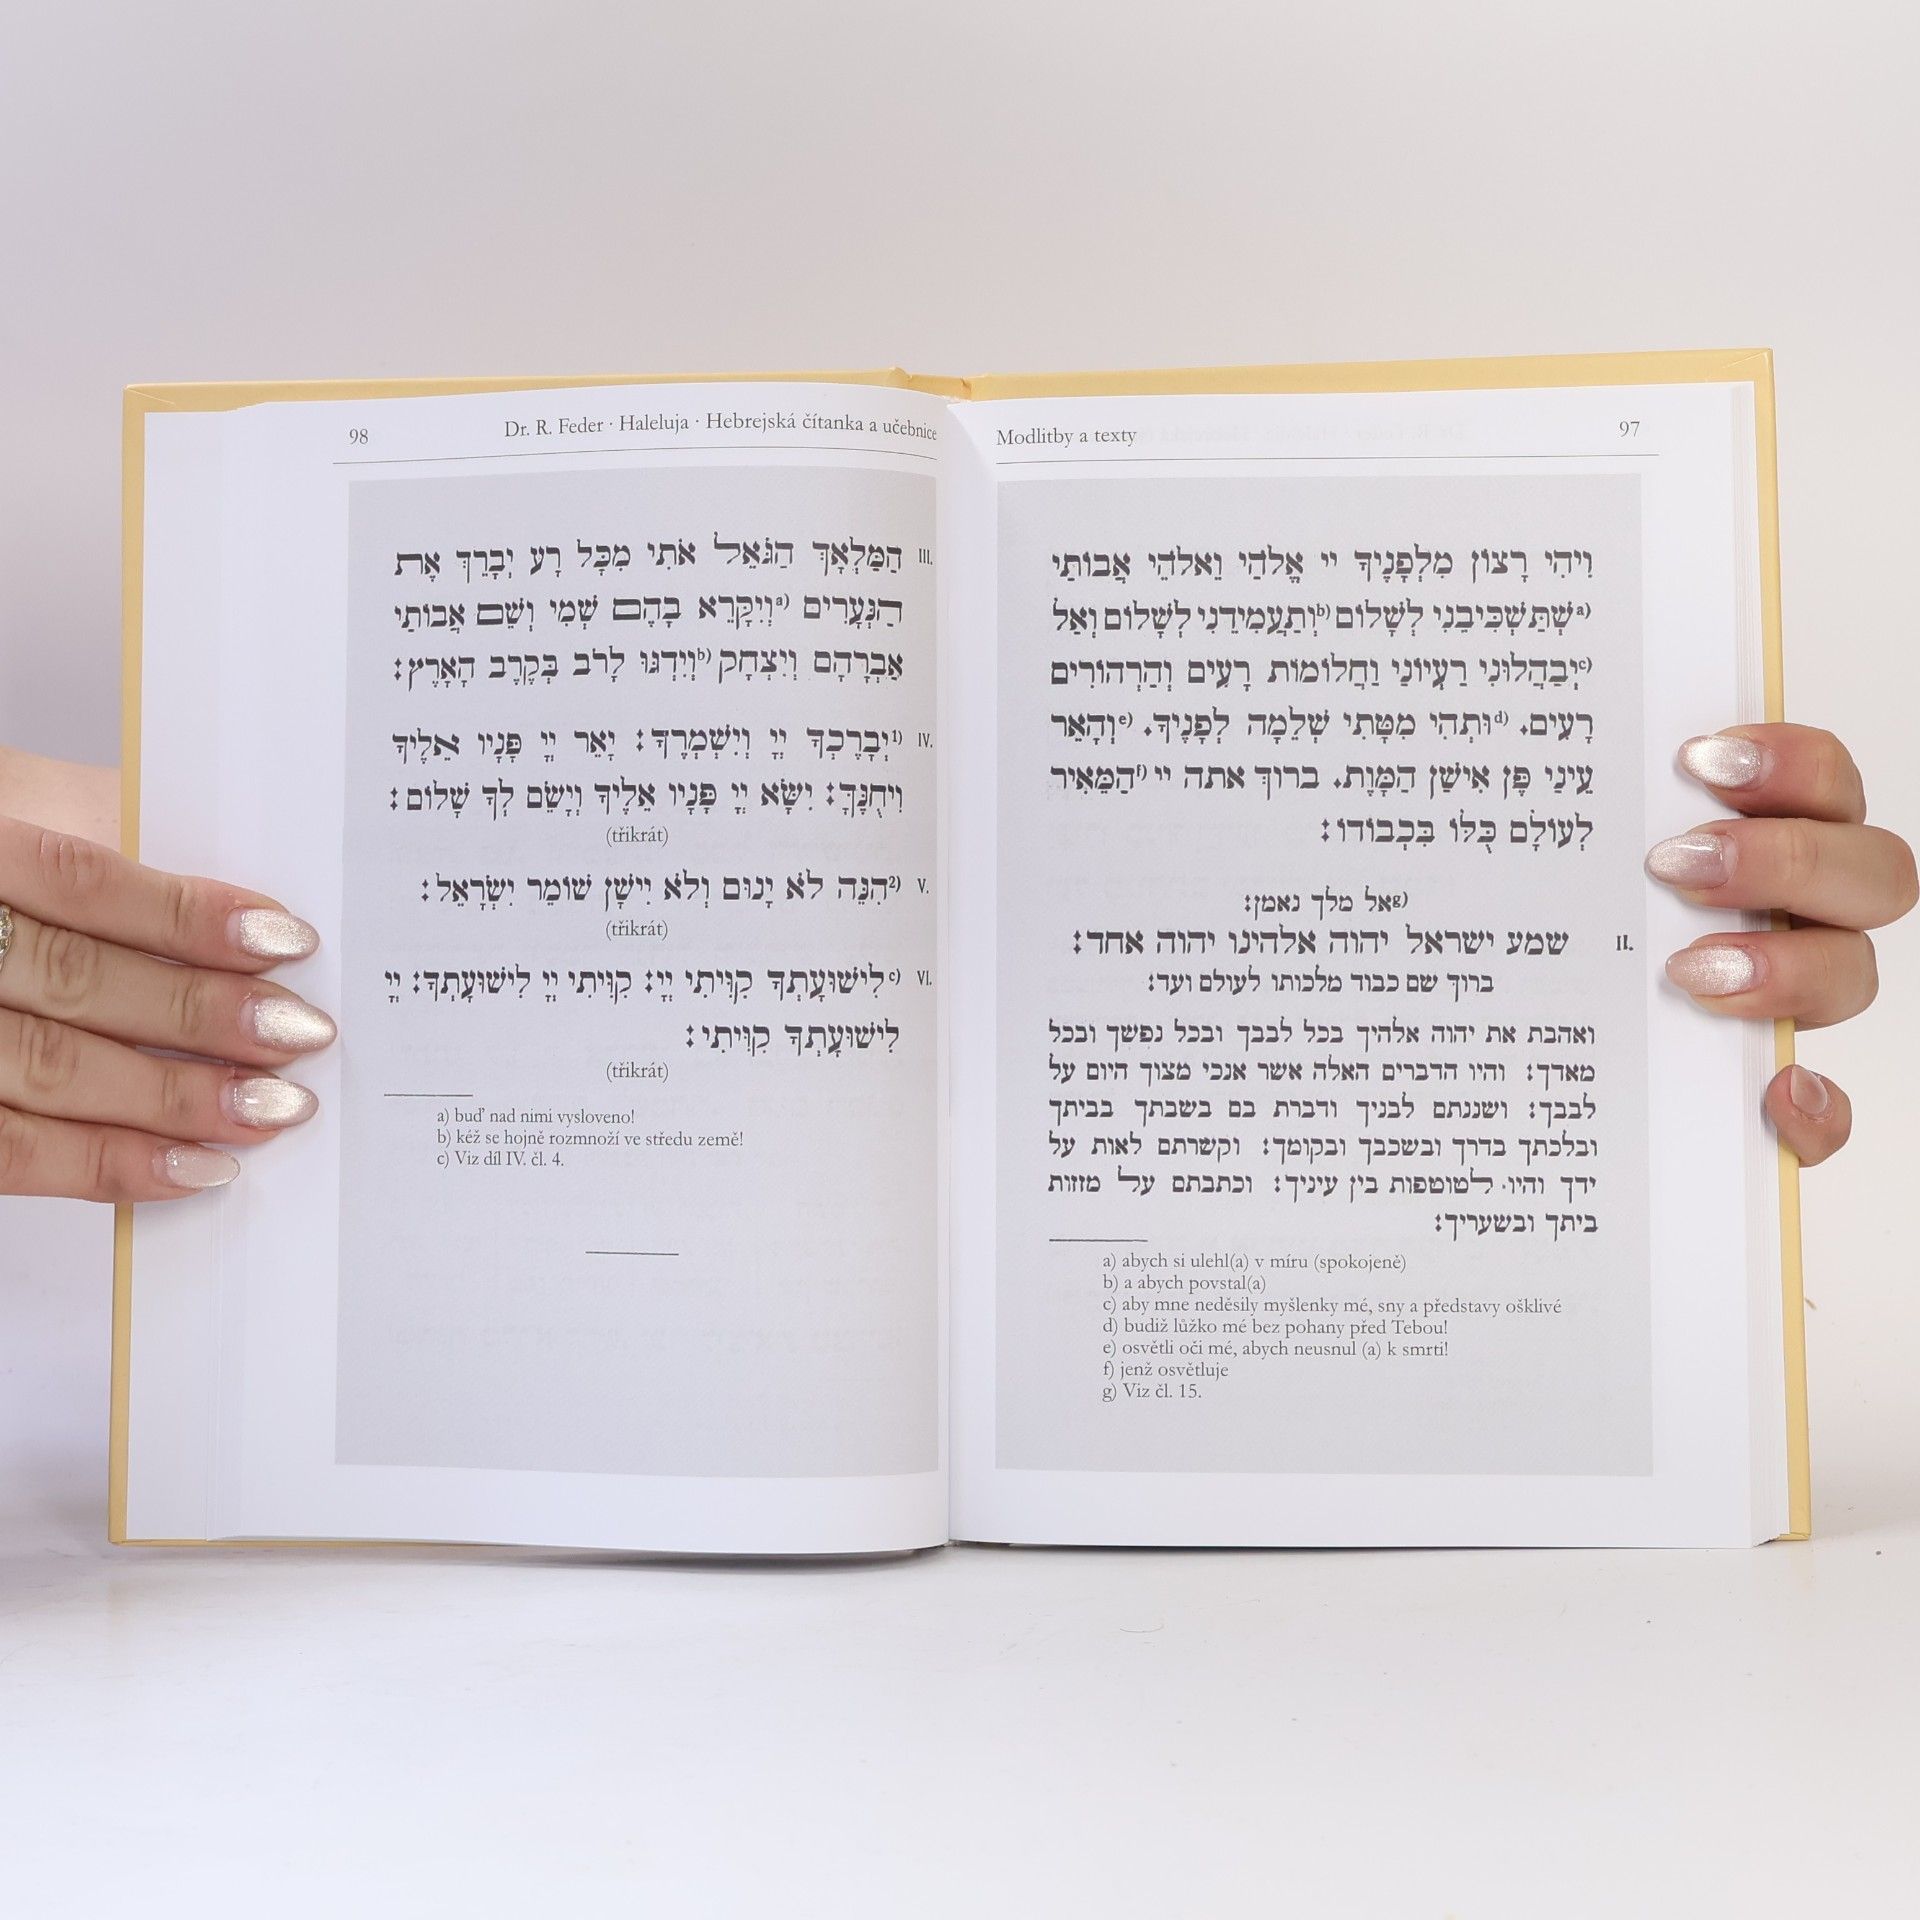 Modlitby a texty 97
וִיהִי רָצוֹן מִלְפָנֶיךָ יי אֱלֹהַי וֵאלֹהֵי אֲבוֹתַי
a)שֶׁתַּשְׁכִּיבֵנִי לְשָׁלוֹם b)וְתַעֲמִידֵנִי לְשָׁלוֹם וְאַל
c)יְבַהֲלוּנִי רַעְיוֹנַי וַחֲלוֹמוֹת רָעִים וְהַרְהוֹרִים
רָעִים. d)וּתְהִי מִטָּתִי שְׁלֵמָה לְפָנֶיךָ. e)וְהָאֵר
עֵינַי פֶּן אִישַׁן הַמָּוֶת. ברוך אתה יי f)הַמֵּאִיר
לְעוֹלָם כֻּלּוֹ בִּכְבוֹדוֹ:
g)אל מלך נאמן:
II. שמע ישראל יהוה אלהינו יהוה אחד:
ברוך שם כבוד מלכותו לעולם ועד:
ואהבת את יהוה אלהיך בכל לבבך ובכל נפשך ובכל
מאדך: והיו הדברים האלה אשר אנכי מצוך היום על
לבבך: ושננתם לבניך ודברת בם בשבתך בביתך
ובלכתך בדרך ובשכבך ובקומך: וקשרתם לאות על
ידך והיו לטוטפות בין עיניך: וכתבתם על מזזות
ביתך ובשעריך:
a) abych si ulehl(a) v míru (spokojeně)
b) a abych povstal(a)
c) aby mne neděsily myšlenky mé, sny a představy ošklivé
d) budiž lůžko mé bez pohany před Tebou!
e) osvětli oči mé, abych neusnul (a) k smrti!
f) jenž osvětluje
g) Viz čl. 15.
98 Dr. R. Feder · Haleluja · Hebrejská čítanka a učebnice
III. הַמַּלְאָךְ הַגֹּאֵל אֹתִי מִכָּל רָע יְבָרֵךְ אֶת
הַנְּעָרִים a)וְיִקָּרֵא בָהֶם שְׁמִי וְשֵׁם אֲבוֹתַי
אַבְרָהָם וְיִצְחָק b)וְיִדְגּוּ לָרֹב בְּקֶרֶב הָאָרֶץ:
IV. 1)יְבָרֶכְךָ יְיָ וְיִשְׁמְרֶךָ: יָאֵר יְיָ פָּנָיו אֵלֶיךָ
וִיחֻנֶּךָּ: יִשָּׂא יְיָ פָּנָיו אֵלֶיךָ וְיָשֵׂם לְךָ שָׁלוֹם:
(třikrát)
V. 2)הִנֵּה לֹא יָנוּם וְלֹא יִישָׁן שׁוֹמֵר יִשְׂרָאֵל:
(třikrát)
VI. c)לִישׁוּעָתְךָ קִוִּיתִי יְיָ: קִוִּיתִי יְיָ לִישׁוּעָתְךָ: יְיָ
לִישׁוּעָתְךָ קִוִּיתִי:
(třikrát)
a) buď nad nimi vysloveno!
b) kéž se hojně rozmnoží ve středu země!
c) Viz díl IV. čl. 4.